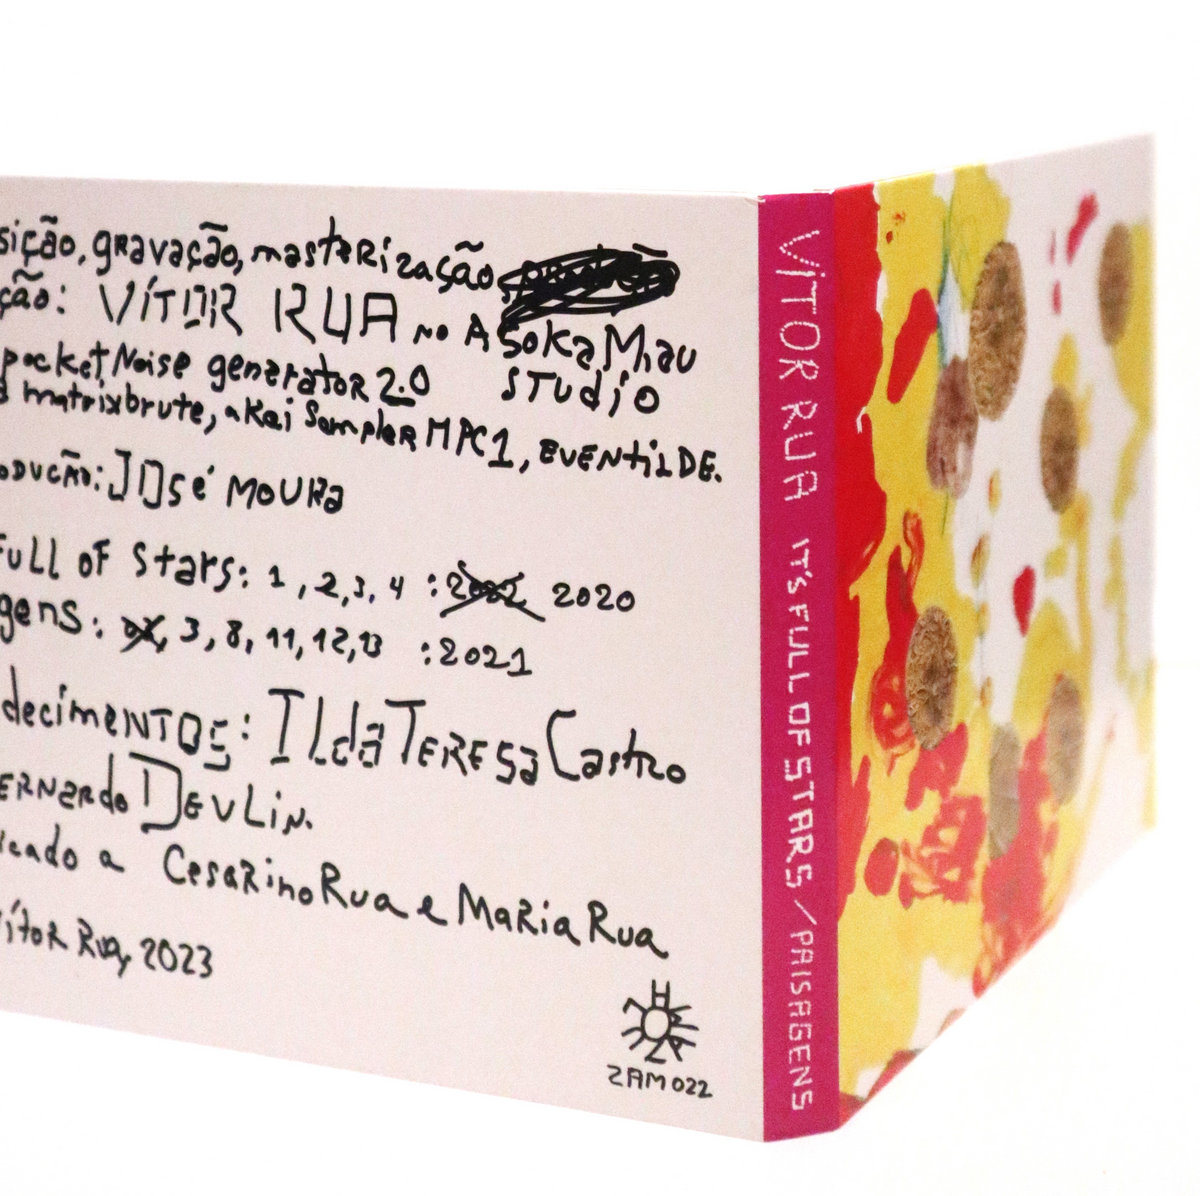 sição, gravação, masterização,
ção: VÍTOR RUA no ASokaMau
STUdio
pocketNoise generator 2.0
matrixbrute, akai Sampler MPC1, EVENTiLDE.
odução: JOsé MOURa
Full of Stars: 1, 2, 3, 4 : 2002 2020
gens: 3, 8, 11, 12, 13 : 2021
decimENTOS: ILda TERESa Castro
ERNardo DEVLiN.
icado a CesaRinoRua e MaRia Rua
ítoR Rua, 2023
ZAM022
VÍTOR RUA IT'S FULL OF STARS / PAISAGENS